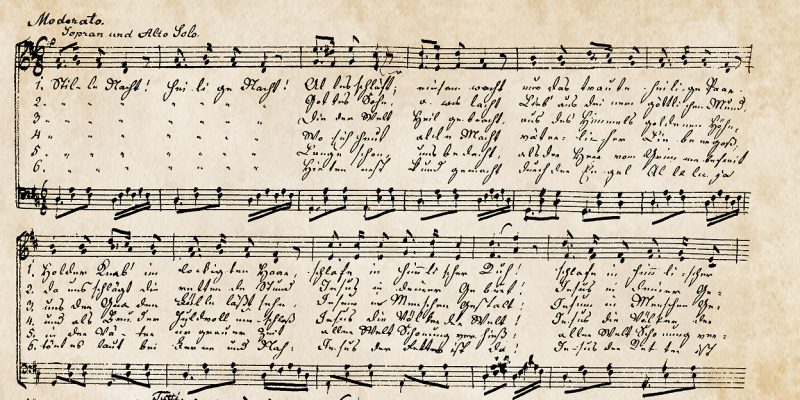 Moderato.
Sopran und Alto Solo.
1. Stille Nacht! Heilige Nacht! Alles schläft; einsam wacht nur das traute heilige Paar.
2. " " " " " Gottes Sohn, o wie lacht Lieb' aus deinem göttlichen Mund,
3. " " " " " Die der Welt Heil gebracht, aus des Himmels goldenen Höhn,
4. " " " " " Wo sich heut alle Macht väterlicher Liebe ergoß,
5. " " " " " Lange schon uns bedacht, als der Herr vom Grimme befreit
6. " " " " " Hirten erst kund gemacht durch der Engel Alleluja
1. Holder Knab' im lockigten Haar, schlafe in himmlischer Ruh! schlafe in himmlischer
2. da uns schlägt die rettende Stund Jesus in deiner Geburt! Jesus in deiner Ge-
3. uns der Gnaden Fülle läßt sehn Jesum in Menschen Gestalt, Jesum in Menschen Ge-
4. und als Bruder huldvoll umschloß Jesus die Völker der Welt! Jesus die Völker der
5. in der Väter urgrauer Zeit aller Welt Schonung verhieß, aller Welt Schonung ver-
6. tönet laut bei Ferne und Nah: Jesus der Retter ist da! Jesus der Retter ist
Tutti